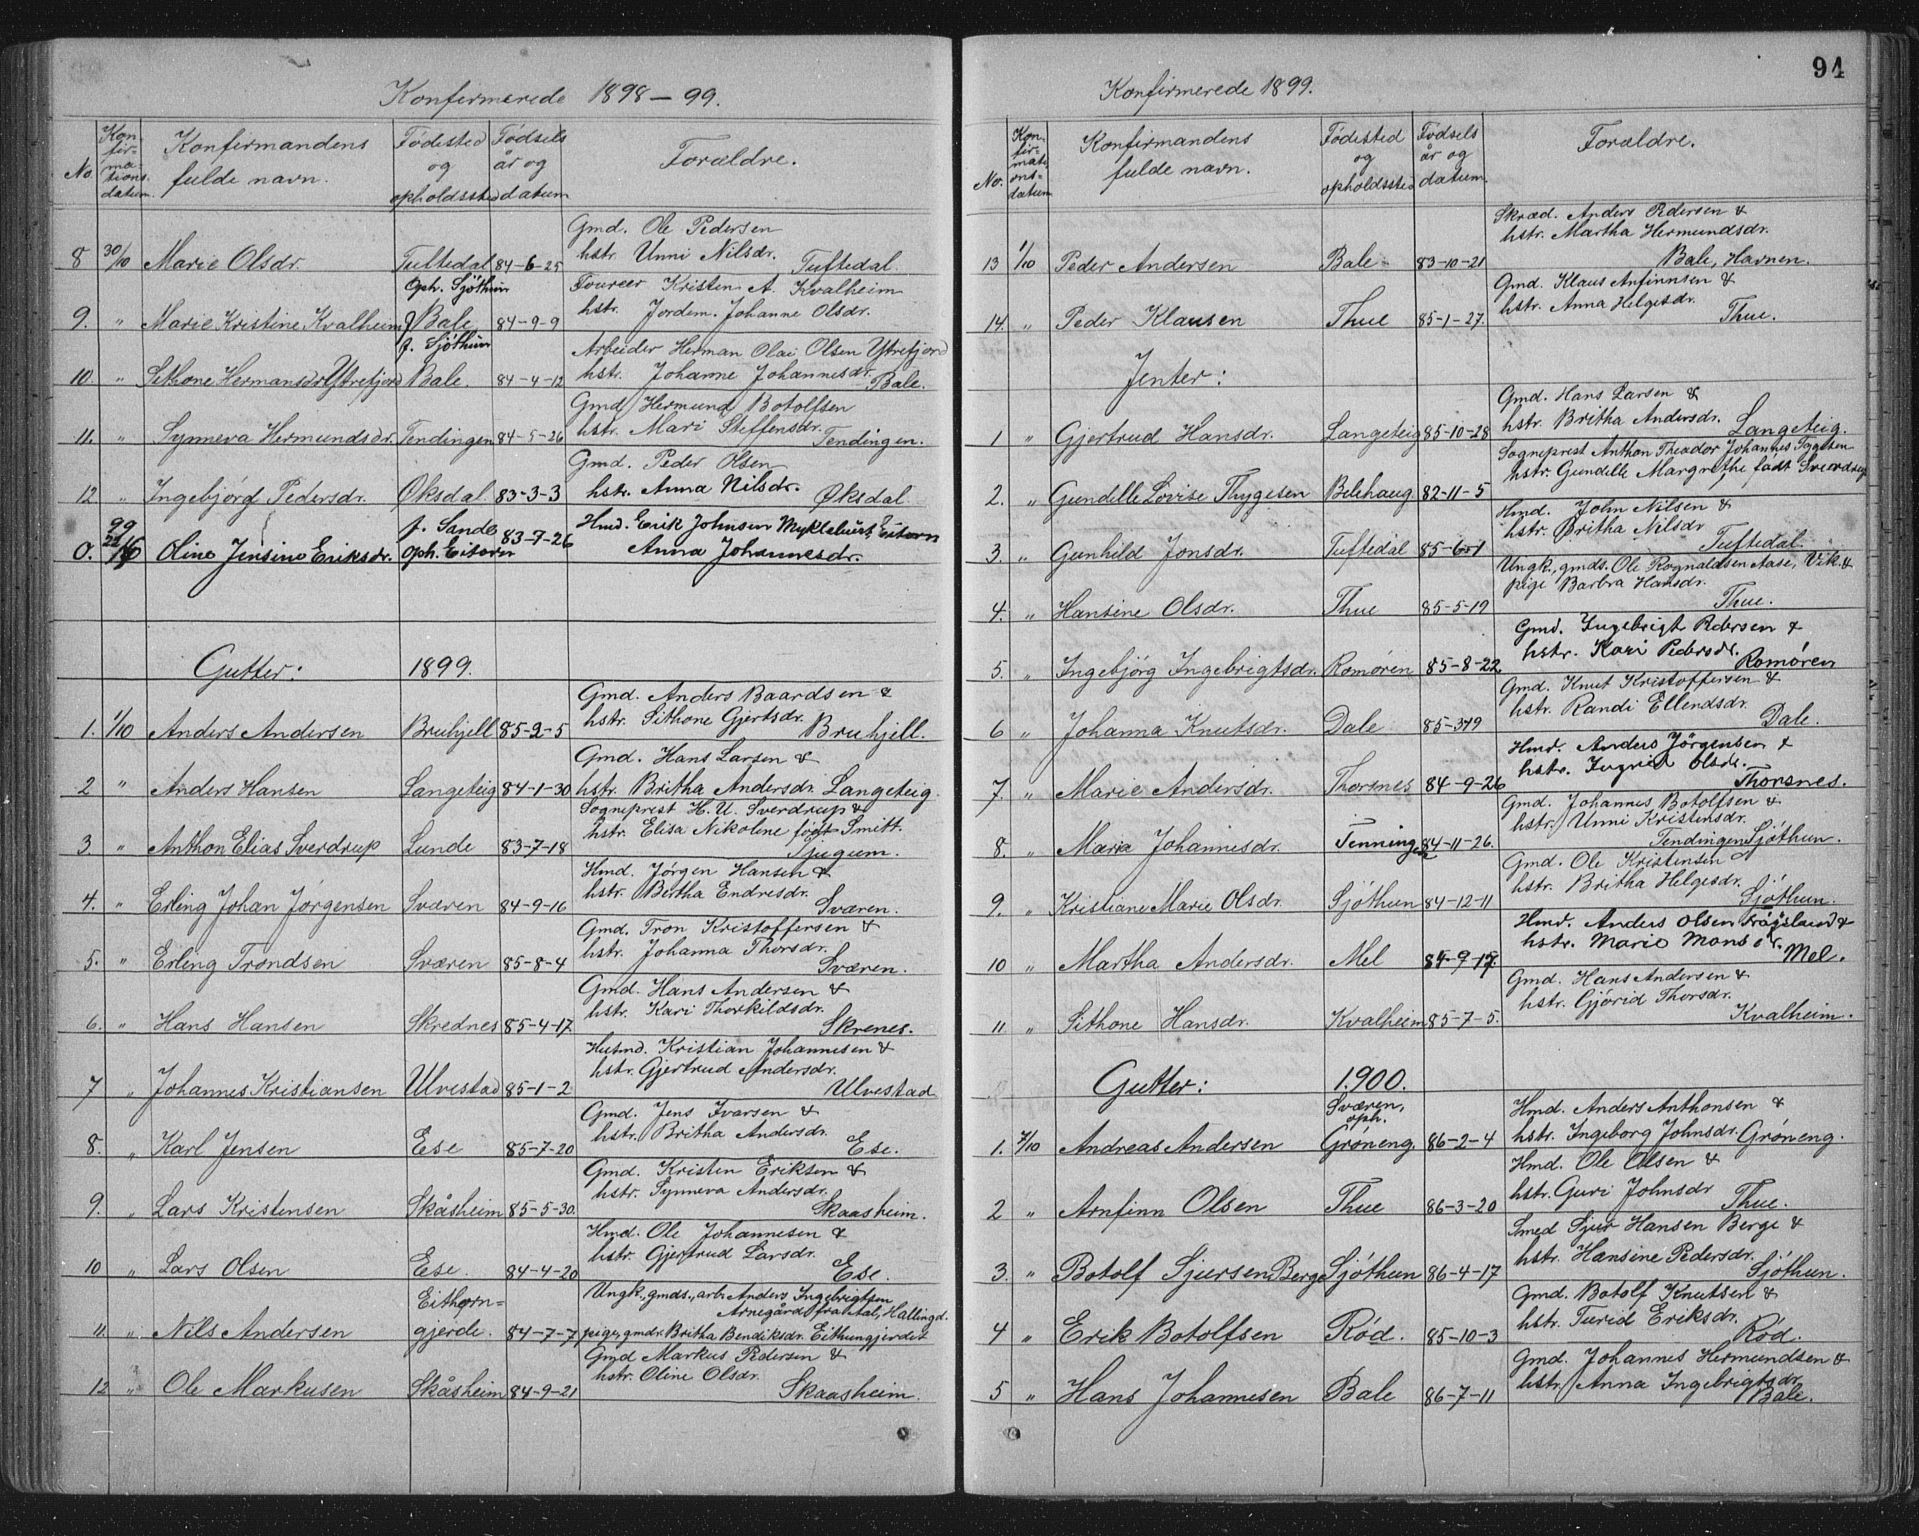 Konfirmerede 1898-99.
No. Konfirmationsdatum. Konfirmandens fulde navn. Fødested og opholdssted Fødsels år og datum Forældre.
Gmd. Ole Pedersen
8 30/10 Marie Olsdr. Tuftedal 84-6-25 hstr. Unni Nilsdr. Tuftedal
Oph. Sjöthun Kristen A. Kvalheim
9. " Marie Kristine Kvalheim f. Bale 84-9-9 hstr. Jordem. Johanne Olsdr.
f. Sjöthun Arbeider Herman Olai Olsen Ytrefjord
10. " Sithone Hermansdr Ytrefjord Bale. 84-4-12 hstr. Johanne Johannesdr. Bale.
Gmd. Hermund Botolfsen
11. " Synneva Hermundsdr. Tendingen 84-5-26 hstr. Mari Steffensdr. Tendingen.
Gmd. Peder Olsen
12 " Ingebjörg Pedersdr. Øksdal 83-3-3 hstr. Anna Nilsdr. Øksdal
99 f. Sande Hmd. Erik Johnsen Myklebust, Eitorn
0. Oline Jensine Eriksdr. Oph. Eitorn 83-7-26 Anna Johannesdr.
Gutter: 1899.
Gmd. Anders Baardsen &
1. 1/10 Anders Andersen Bruhjell 85-2-5 hstr. Sithone Gjertsdr. Bruhjell.
Gmd. Hans Larsen &
2 " Anders Hansen Langeteig 84-1-30 hstr. Britha Andersdr. Langeteig.
Sogneprest H. U. Sverdrup &
3. " Anthon Elias Sverdrup Lunde 83-7-18 hstr. Elisa Nikoline født Smitt.
Njugum.
Hmd. Jørgen Hansen &
4. " Erling Johan Jørgensen Sværen 84-9-16 hstr. Bertha Endresdr. Sværen.
Gmd. Tron Kristoffersen &
5. " Erling Trondsen Sværen 85-8-4 hstr. Johanna Thorsdr. Sværen.
Gmd. Hans Andersen &
6. " Hans Hansen Skrednes 85-4-17 hstr. Kari Thorkildsdr. Skrenes.
Husmd. Kristian Johannesen &
7 " Johannes Kristiansen Ulvestad 85-1-2 hstr. Gjertrud Andersdr. Ulvestad
Gmd. Jens Ivarsen &
8. " Karl Jensen Ese 85-7-20 hstr. Britha Andersdr. Ese.
Gmd. Kristen Eriksen &
9. " Lars Kristensen Skåsheim 85-5-30. hstr. Synneva Andersdr. Skaasheim.
Hmd. Ole Johannesen &
10 " Lars Olsen Ese. 84-4-20 hstr. Gjertrud Larsdr. Ese.
Eithorn= Ungk., gmds., arb. Anders Ingebrigtsen
Arnegård, Hallingd.
11 " Nils Andersen gjerde. 84-7-7 pige, gmdr. Britha Bendiksdr. Eithungjerdet
Gmd Markus Pedersen &
12 " Ole Markusen Skåsheim 84-9-21 hstr. Oline Olsdr. Skaasheim.
94
Konfirmerede 1899.
No. Konfirmationsdatum Konfirmandens fulde navn. Fødested og opholdssted Fødsels år og datum. Forældre.
Skræd. Anders Pedersen &
hstr. Martha Hermundsdr.
13 1/10 Peder Andersen Bale 83-10-21 Bale, Havnen.
Gmd. Klaus Anfinnsen &
hstr. Anna Helgesdr.
14. " Peder Klausen Thue 85-1-27. Thue.
Jenter:
Gmd. Hans Larsen &
hstr. Britha Andersdr.
1 " Gjertrud Hansdr. Langeteig 85-10-28 Langeteig.
Sogneprest Anthon Theodor Johannes Tygesen
hstr. Gundelle Margrethe født Sverdrup
2. " Gundelle Lovise Thygesen Belehaug 82-11-5
Hmd. John Nilsen &
hstr. Britha Nilsdr
3. " Gunhild Jonsdr. Tuftedal 85-6-1 Tuftedal.
Ungk., gmds. Ole Rognaldsen Aase, Vik. &
pige Barbra Hansdr.
4. " Hansine Olsdr. Thue 85-5-19 Thue.
Gmd. Ingebrigt Pedersen &
hstr. Kari Pedersdr.
5. " Ingebjörg Ingebrigtsdr. Romören 85-8-22 Romören
Gmd. Knut Kristoffersen &
hstr. Randi Ellendsdr.
6 " Johanna Knutsdr. Dale 85-3-19 Dale.
Hmd. Anders Jörgensen &
hstr. Ingrid Olsdr.
7. " Marie Andersdr. Thorsnes 84-9-26 Thorsnes.
Gmd. Johannes Botolfsen &
hstr. Unni Kristensdr.
8. " Maria Johannesdr. Tenningen 84-11-26. Tendingen Sjöthun.
Gmd. Ole Kristensen &
hstr. Britha Helgesdr.
9. " Kristiane Marie Olsdr. Sjöthun 84-12-11 Sjöthun.
Hmd. Anders Olsen &
hstr. Marie Monsdr.
10 " Martha Andersdr. Mel Mel.
Gmd. Hans Andersen &
hstr. Gjörid Thorsdr.
11 " Sithone Hansdr. Kvalheim 85-7-5. Kvalheim.
Gutter: 1900.
Sværen, oph. Hmd. Anders Anthonsen &
1. 7/10 Andreas Andersen Gröneng 86-2-4 hstr. Ingeborg Johnsdr. Gröneng.
Hmd. Ole Olsen &
hstr. Guri Johnsdr
2 " Arnfinn Olsen Thue 86-3-20 Thue.
Smed Sjur Hansen Berge &
hstr. Hansine Pedersdr.
3. " Botolf Sjursen Berge Sjöthun 86-4-17 Sjöthun.
Gmd. Botolf Knutsen &
hstr. Turid Eriksdr.
4 " Erik Botolfsen Röd. 85-10-3 Röd.
Gmd. Johannes Hermundsen &
hstr. Anna Ingebrigtsdr.
5 " Hans Johannesen Bale 86-7-11 Bale.